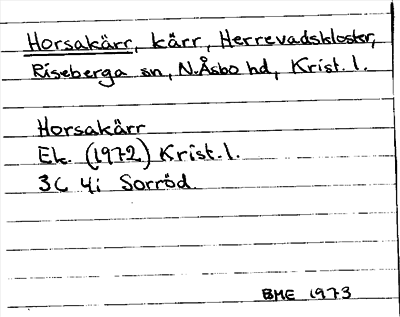 Horsakärr, kärr, Herrevadskloster,
Riseberga sn, N.Åsbo hd, Krist. l.
Horsakärr
Ek. (1972) Krist. l.
3C 4i Sorröd
BME 1973